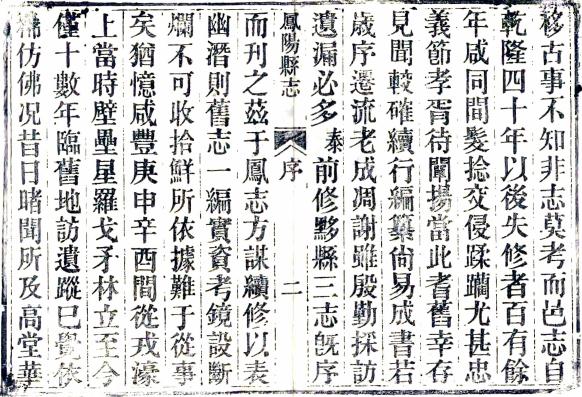 移古事不知非志莫考而邑志自
乾隆四十年以後失修者百有餘
年咸同間髮捻交侵蹂躪尤甚忠
義節孝胥待闡揚當此耆舊幸存
見聞較確續行編纂尚易成書若
歲序遷流老成凋謝雖殷勤採訪
遺漏必多泰前修黟縣三志旣序
鳳陽縣志 序 二
而刊之茲于鳳志方謀續修以表
幽潛則舊志一編實資考鏡設斷
爛不可收拾鮮所依據難于從事
矣猶憶咸豐庚申辛酉間從戎濠
上當時壁壘星羅戈矛林立至今
僅十數年臨舊地訪遺蹤已覺依
稀仿佛况昔日睹聞所及高堂華